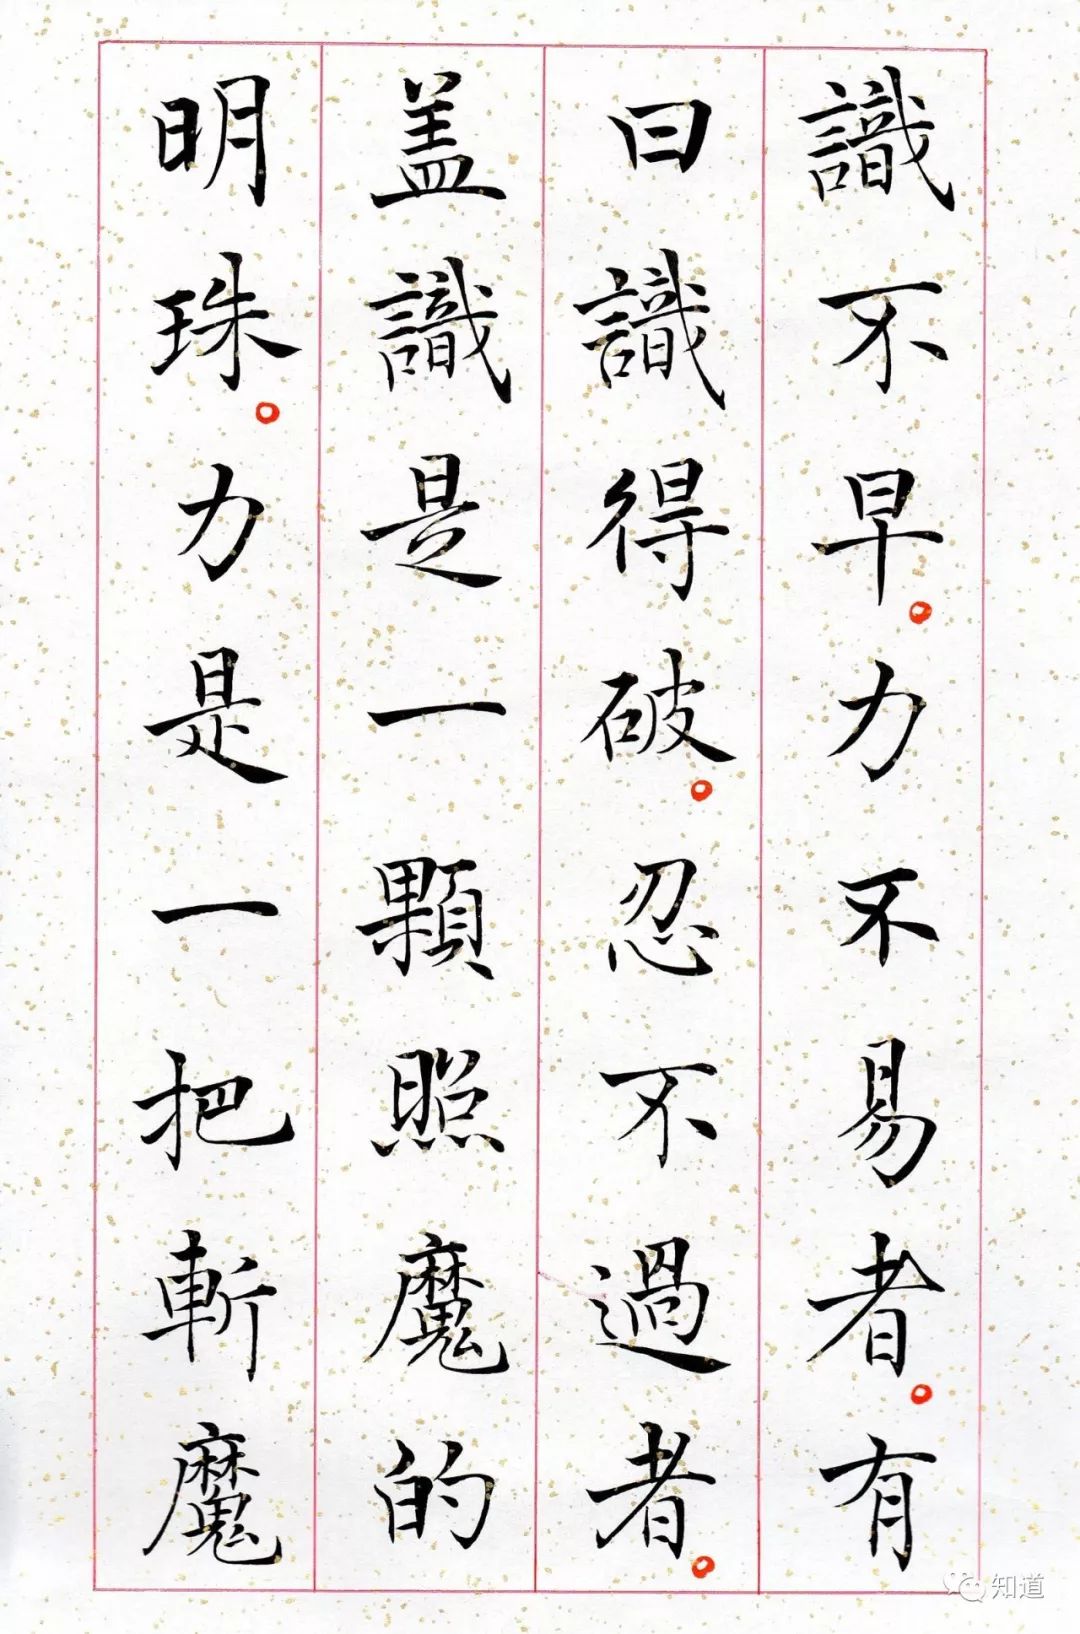 識不早。力不易者。有
曰識得破。忍不過者。
盖識是一顆照魔的
明珠。力是一把斬魔
知道